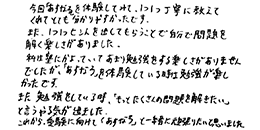 今回あすなろを体験してみて、1つ1つ丁寧に教えて
くれてとても分かりやすかったです。
また、1つヒントを出してもらうことで自分で問題を
解く楽しさがありました。
私は集たがよっていてあまり勉強をする楽しさがありません
でしたが、「あすなろ」を体験している時は勉強が楽し
かったです。
また勉強をしている時、「もってたくさんの問題を解きたい。」
と言うやる気が出ました。
これから、受験に向けて「あすなろ」と一者に頑張りたいと思いました